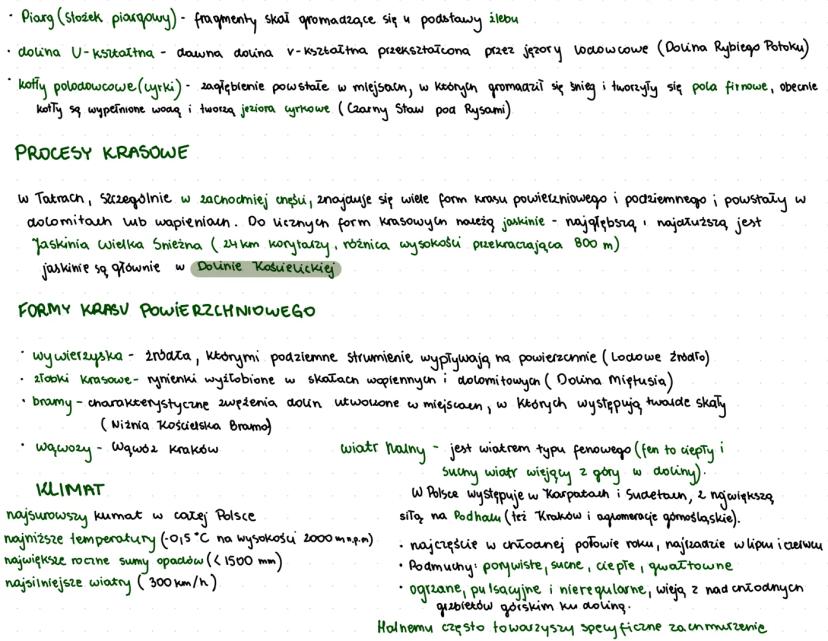 · Piarg (stożek piargowy) - fragmenty skał gromadzące się u podstawy żlebu
· dolina U-kształtna - dawna dolina v-kształtna przekształcona przez jęzory lodowcowe (Dolina Rybiego Potoku)
· kotły polodowcowe (cyrki) - zagłębienie powstałe w miejsach, w których gromadził się śnieg i tworzyły się pola firnowe, obecnie
kotły są wypełnione wodą i tworzą jeziora cyrkowe (Czarny Staw pod Rysami)
PROCESY KRASOWE
w Tatrach, szczególnie w zachodniej części, znajduje się wiele form krasu powierzniowego i podziemnego i powstały w
dolomitach lub wapieniach. Do licznych form krasowych należą jaskinie - najgłębszą i najdłuższą jest
Jaskinia Wielka Śnieżna (24 km korytarzy, różnica wysokości przekraczająca 800 m)
jaskinie są głównie w Dolinie Kościelickiej
FORMY KRASU POWIERZCHNIOWEGO
· wywierzyska - źródła, którymi podziemne strumienie wypływają na powierzchnie (Lodowe źródło)
· żłobki krasowe - rynienki wyżłobione w skałach wapiennych i dolomitowych (Dolina Miętusia)
· bramy - charakterystyczne zwężenia dolin utworzone w miejscach, w których występują twarde skały
(Niżnia Kościelska Brama)
· wąwozy - Wąwóz Kraków
KLIMAT
najsurowszy klimat w całej Polsce
najniższe temperatury (-0,5°C na wysokości 2000 m n.p.m)
największe roczne sumy opadów (< 1500 mm)
najsilniejsze wiatry (300 km/h)
wiatr halny - jest wiatrem typu fenowego (fen to ciepły i
suchy wiatr wiejący z góry w doliny).
W Polsce występuje w Karpatach i Sudetach, z największą
siłą na Podhalu (też Kraków i aglomeracje górnośląskie).
· najczęście w chłodnej połowie roku, najrzadzie w lipcu i czerwcu
· Podmuchy: porywiste, suche, ciepłe, gwałtowne
· ogrzane, pulsacyjne i nieregularne, wieją z nad chłodnych
grzbietów górskim ku doliną.
Halnemu często towarzyszy specyficzne zachmurzenie